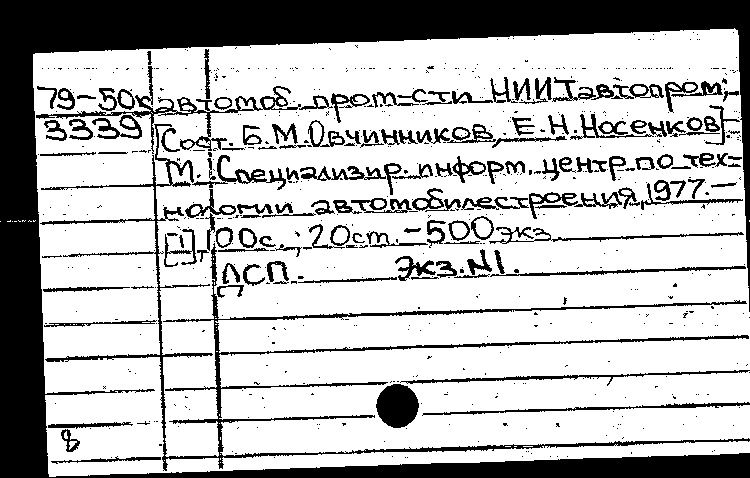 79-50к автомоб. пром-сти НИИТавтопром;
3339 [Сост. Б.М.Овчинников, Е.Н.Носенков]
М. Специализир. информ. центр по тех-
нологии автомобилестроения, 1977.—
[1], 100с.; 20см. -500экз.
ДСП. Экз.N1.
8